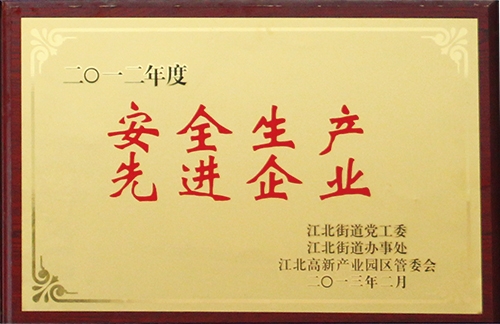 二〇一二年度
安全生产
先进企业
江北街道党工委
江北街道办事处
江北高新产业园区管委会
二〇一三年二月